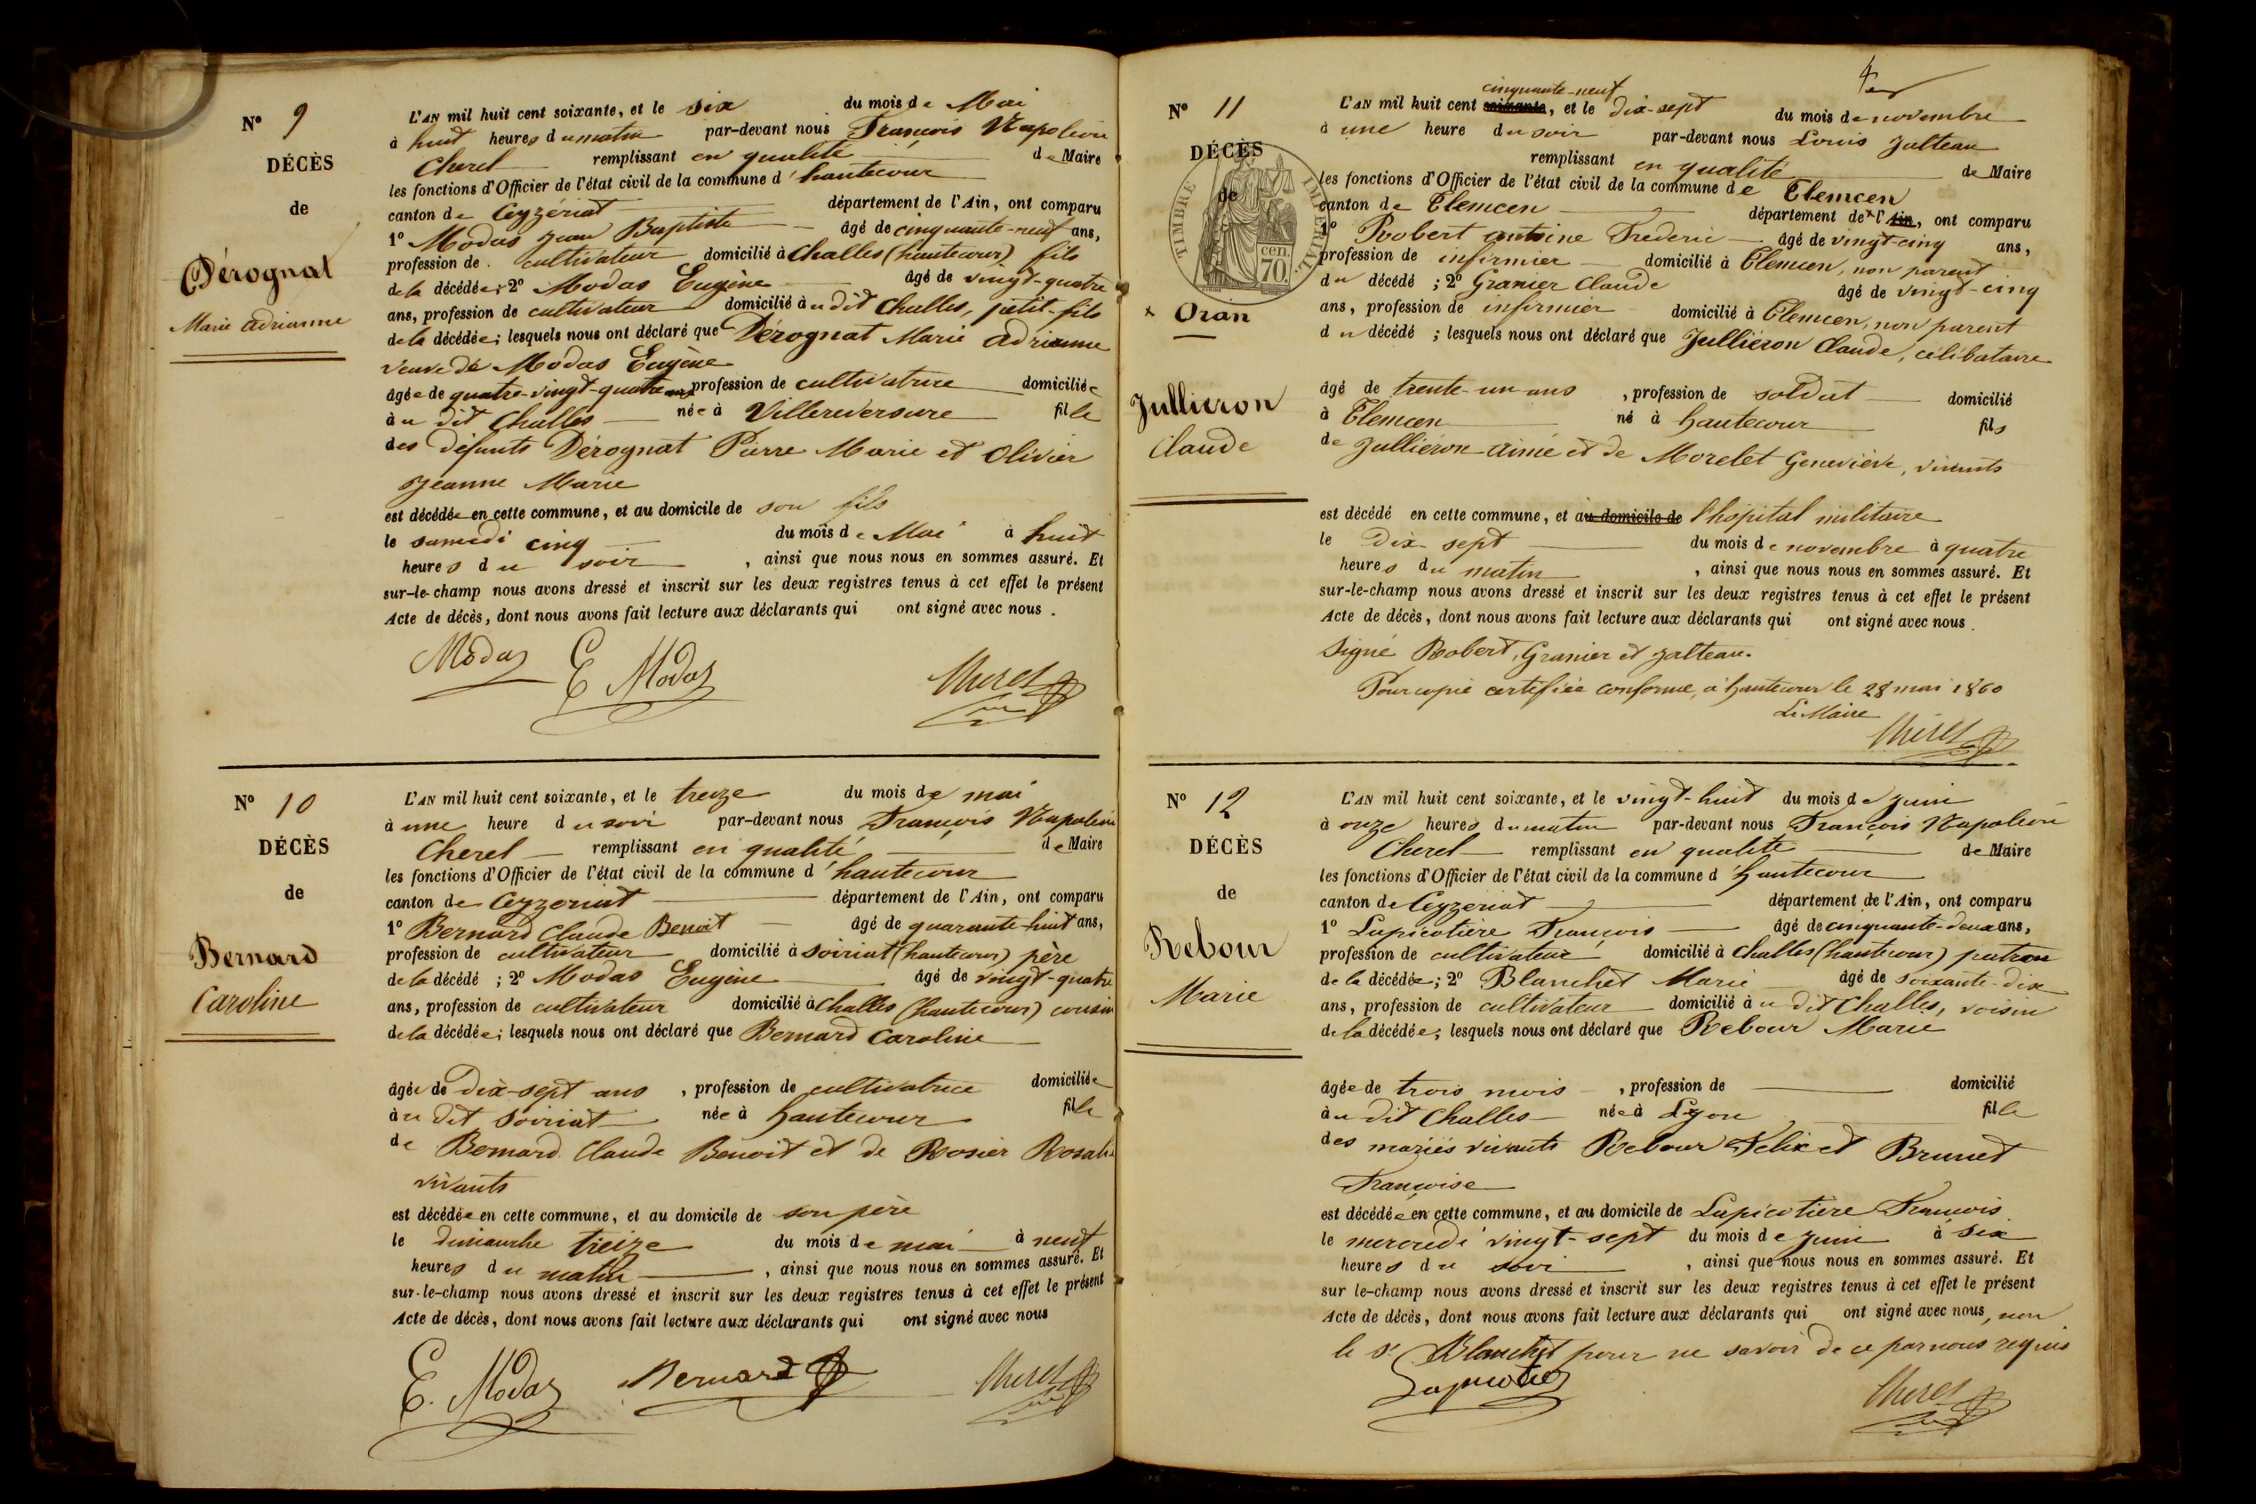 N° 9
DÉCÈS
de
Dérognat
Marie adrianne
L'AN mil huit cent soixante, et le six du mois de Mai
à huit heures du matin par-devant nous François Napoléon
Cherel remplissant en qualité de Maire
les fonctions d'Officier de l'état civil de la commune d'hautecour
canton de Ceyzériat département de l'Ain, ont comparu
1° Modas Jean Baptiste âgé de cinquante-neuf ans,
profession de cultivateur domicilié à Challes (hautecour) fils
de la décédée; 2° Modas Eugène âgé de vingt-quatre
ans, profession de cultivateur domicilié au dit Challes, petit-fils
de la décédée; lesquels nous ont déclaré que Dérognat Marie adrianne
veuve de Modas Eugène
âgée de quatre-vingt-quatre ans profession de cultivatrice domiciliée
au dit Challes née à Villereversure fille
des défunts Dérognat Pierre Marie et Olivier
Jeanne Marie
est décédée en cette commune, et au domicile de son fils
le samedi cinq du mois de Mai à huit
heures du soir, ainsi que nous nous en sommes assuré. Et
sur-le-champ nous avons dressé et inscrit sur les deux registres tenus à cet effet le présent
Acte de décès, dont nous avons fait lecture aux déclarants qui ont signé avec nous.
Modas E Modas Cherel
N° 10
DÉCÈS
de
Bernard
Caroline
L'AN mil huit cent soixante, et le treize du mois de mai
à une heure du soir par-devant nous François Napoléon
Cherel remplissant en qualité de Maire
les fonctions d'Officier de l'état civil de la commune d'hautecour
canton de Ceyzeriat département de l'Ain, ont comparu
1° Bernard Claude Benoit âgé de quarante-huit ans,
profession de cultivateur domicilié à Soiriat (hautecour) père
de la décédé; 2° Modas Eugène âgé de vingt-quatre
ans, profession de cultivateur domicilié à Challes (hautecour) cousin
de la décédée; lesquels nous ont déclaré que Bernard Caroline
âgée de Dix-sept ans, profession de cultivatrice domiciliée
au dit Soiriat née à hautecour fille
de Bernard Claude Benoit et de Rosier Rosalie
vivants
est décédée en cette commune, et au domicile de son père
le dimanche treize du mois de mai à neuf
heures du matin, ainsi que nous nous en sommes assuré. Et
sur-le-champ nous avons dressé et inscrit sur les deux registres tenus à cet effet le présent
Acte de décès, dont nous avons fait lecture aux déclarants qui ont signé avec nous
E. Modas Bernard Cherel
N° 11
DÉCÈS
de
TIMBRE IMPÉRIAL
70 cen.
x Oran
Jullieron
Claude
cinquante-neuf
L'AN mil huit cent soixante, et le dix-sept du mois de novembre
à une heure du soir par-devant nous Louis Jalteau
remplissant en qualité de Maire
les fonctions d'Officier de l'état civil de la commune de Tlemcen
canton de Tlemcen département de x l'Ain, ont comparu
1° Robert antoine Frederic âgé de vingt-cinq ans,
profession de infirmier domicilié à Tlemcen, non parent
du décédé; 2° Granier Claude âgé de vingt-cinq
ans, profession de infirmier domicilié à Tlemcen, non parent
du décédé; lesquels nous ont déclaré que Jullieron Claude, célibataire
âgé de trente-un ans, profession de soldat domicilié
à Tlemcen né à hautecour fils
de Jullieron aimé et de Morelet Geneviève, vivants
est décédé en cette commune, et au domicile de l'hôpital militaire
le Dix-sept du mois de novembre à quatre
heures du matin, ainsi que nous nous en sommes assuré. Et
sur-le-champ nous avons dressé et inscrit sur les deux registres tenus à cet effet le présent
Acte de décès, dont nous avons fait lecture aux déclarants qui ont signé avec nous.
Signé Robert, Granier et Jalteau.
Pour copie certifiée conforme, à hautecour le 28 mai 1860
Le Maire
Cherel
N° 12
DÉCÈS
de
Rebour
Marie
L'AN mil huit cent soixante, et le vingt-huit du mois de juin
à onze heures du matin par-devant nous François Napoléon
Cherel remplissant en qualité de Maire
les fonctions d'Officier de l'état civil de la commune d'hautecour
canton de Ceyzeriat département de l'Ain, ont comparu
1° Lapicotiere François âgé de cinquante-deux ans,
profession de cultivateur domicilié à Challes (hautecour) patron
de la décédée; 2° Blanchet Marie âgé de soixante-dix
ans, profession de cultivateur domicilié au dit Challes, voisin
de la décédée; lesquels nous ont déclaré que Rebour Marie
âgée de trois mois, profession de domicilié
au dit Challes née à Lyon fille
des mariés vivants Rebour Felix et Brunet
Françoise
est décédée en cette commune, et au domicile de Lapicotiere François
le mercredi vingt-sept du mois de juin à six
heures du soir, ainsi que nous nous en sommes assuré. Et
sur le-champ nous avons dressé et inscrit sur les deux registres tenus à cet effet le présent
Acte de décès, dont nous avons fait lecture aux déclarants qui ont signé avec nous, non
le Sr Blanchet pour ne savoir de ce par nous requis
Cherel